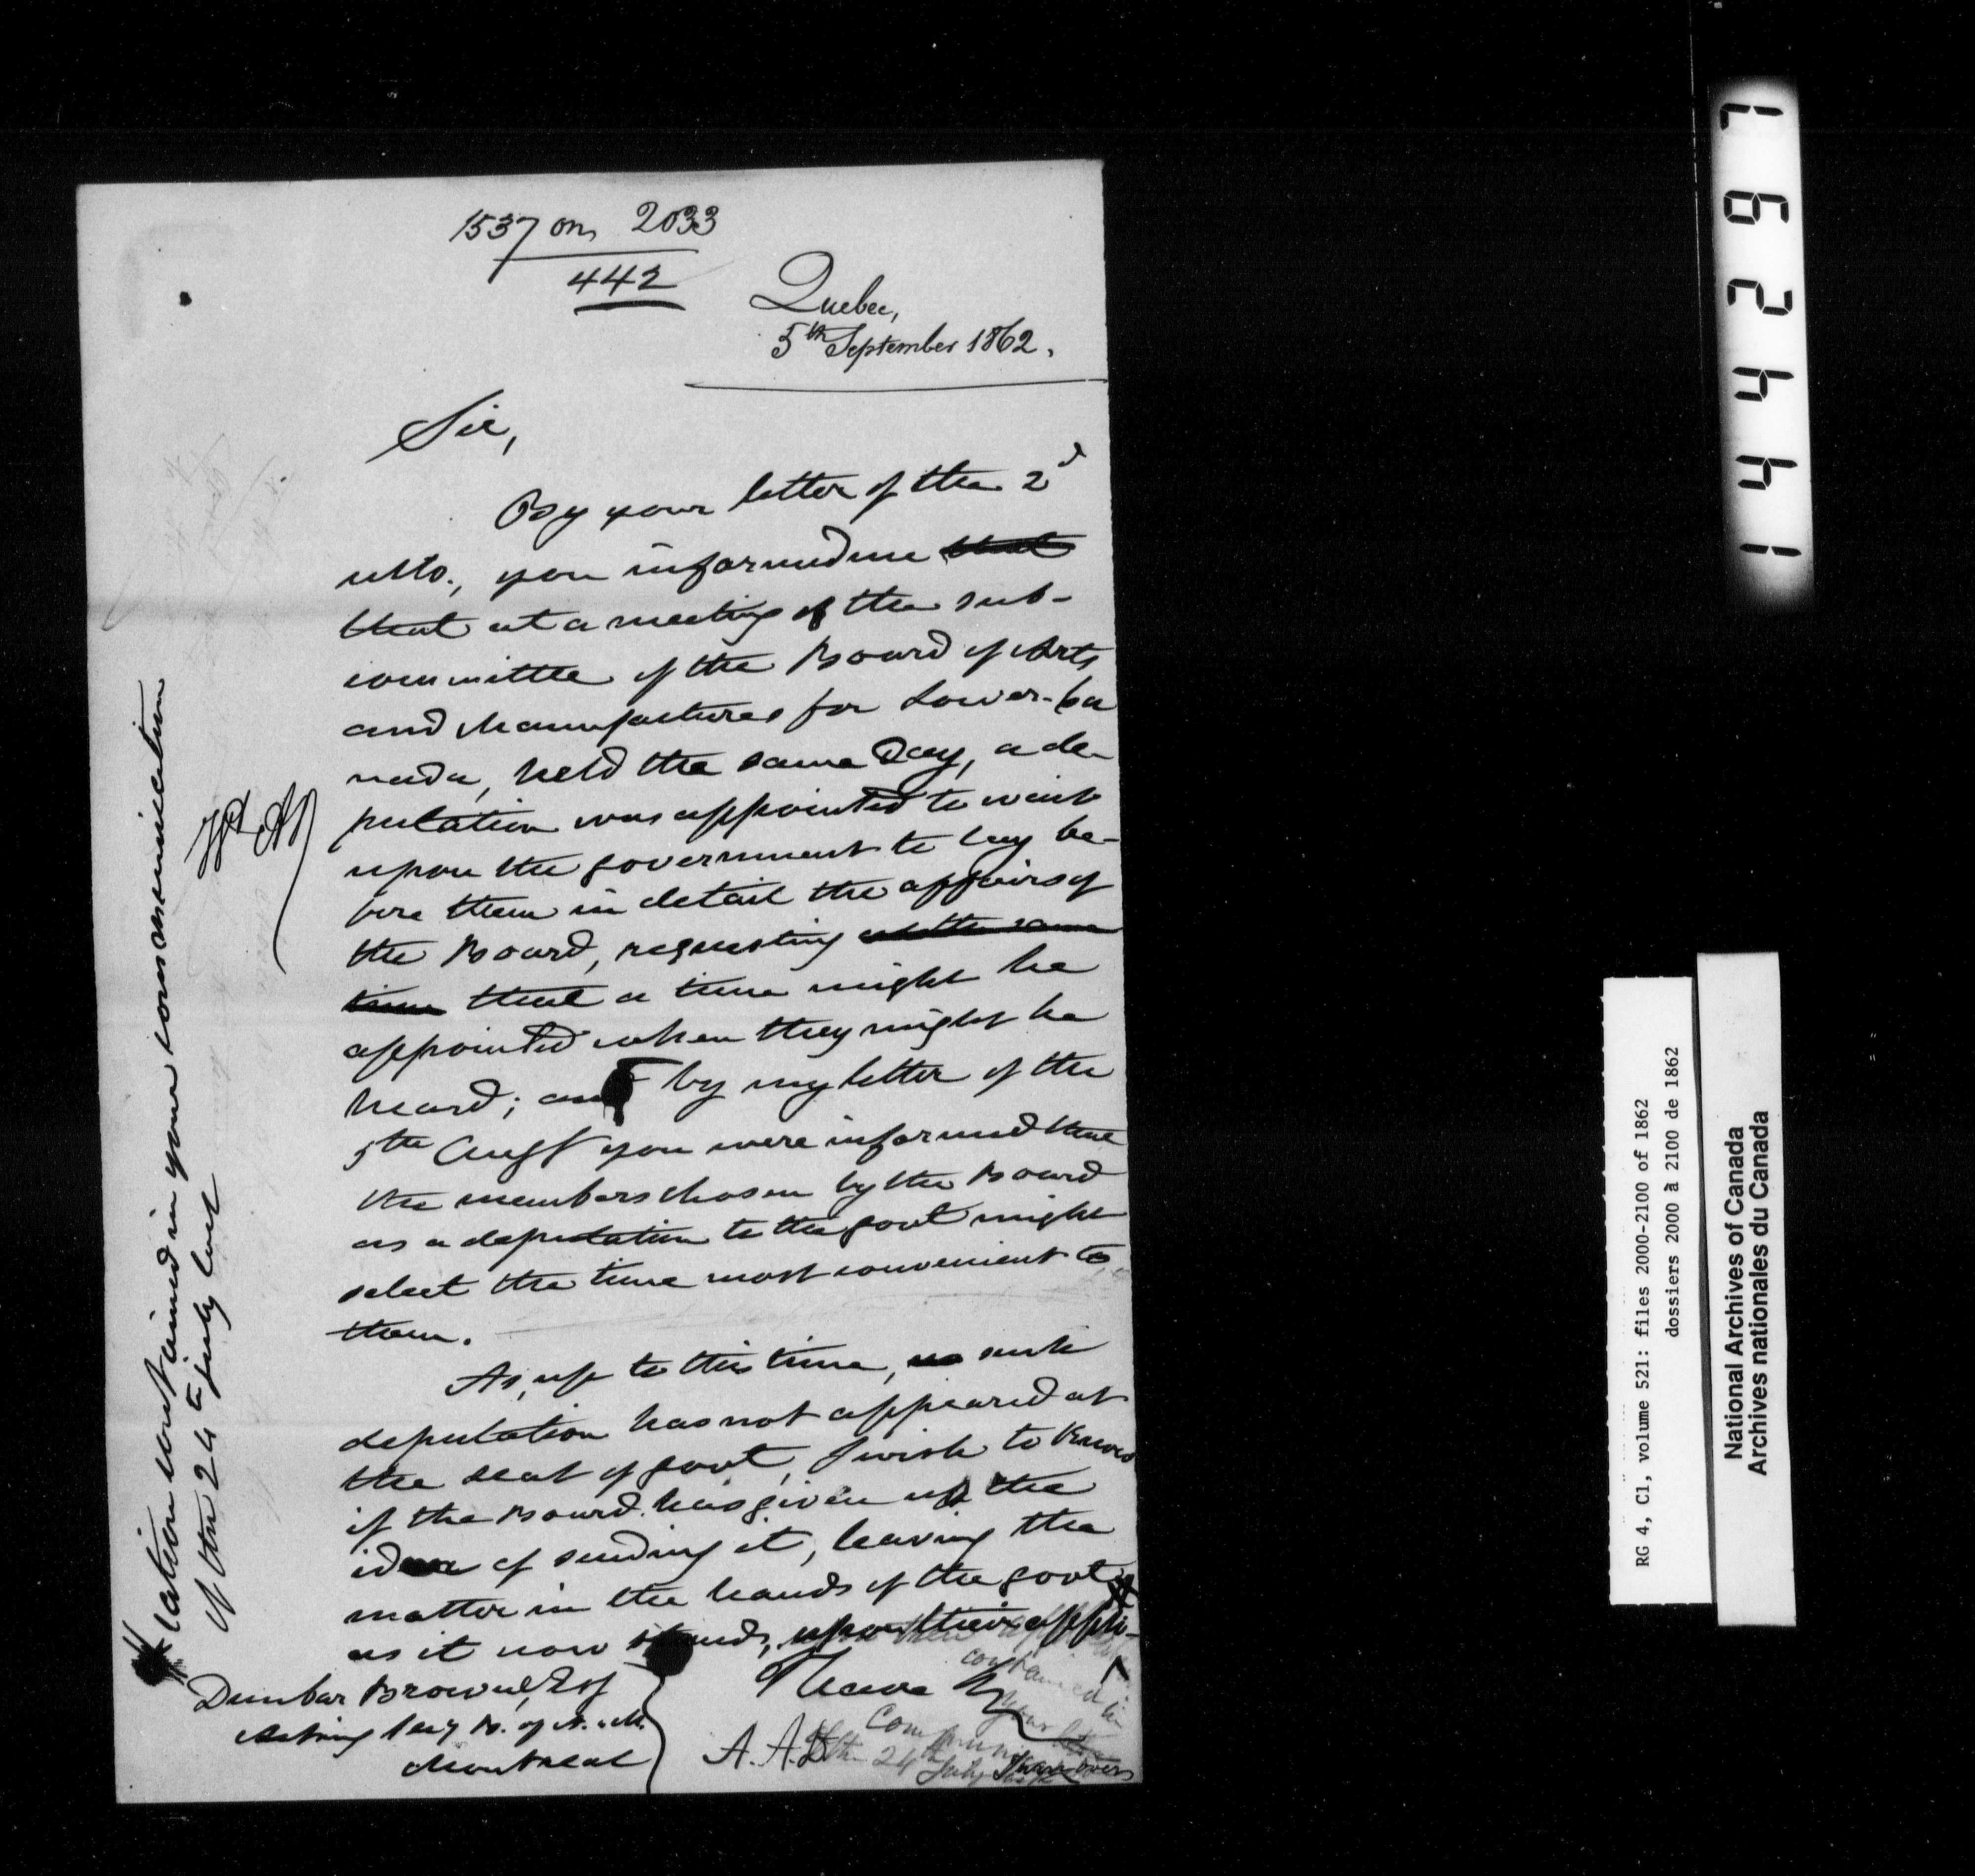 1537 on 2033
442
Quebec,
5th September 1862.
Sir,
By your letter of the 2d
ulto., you informed me that
that at a meeting of the sub-
committee of the Board of Arts
and Manufactures for Lower-Ca
nada, held the same Day, a de-
putation was appointed to wait
upon the government to lay be-
fore them in detail the affairs of
the Board, requesting at the same
time that a time might be
appointed when they might be
heard; and by my letter of the
5th Augt you were informed that
the members chosen by the Board
as a deputation to the govt might
select the time most convenient to
them.
As, up to this time, no such
deputation has not appeared at
the seat of govt, I wish to know
if the Board has given up the
idea of sending it, leaving the
matter in the hands of the govt
as it now stands, upon their appli-
cation contained in your communication
of the 24th July last
I have
A. A. D
contained in
your
communication
of the 24th
July
Dunbar Browne, Esq
Acting Secy B. of A. & M.
Montreal
1442697
RG 4, C1, volume 521: files 2000-2100 of 1862
dossiers 2000 à 2100 de 1862
National Archives of Canada
Archives nationales du Canada